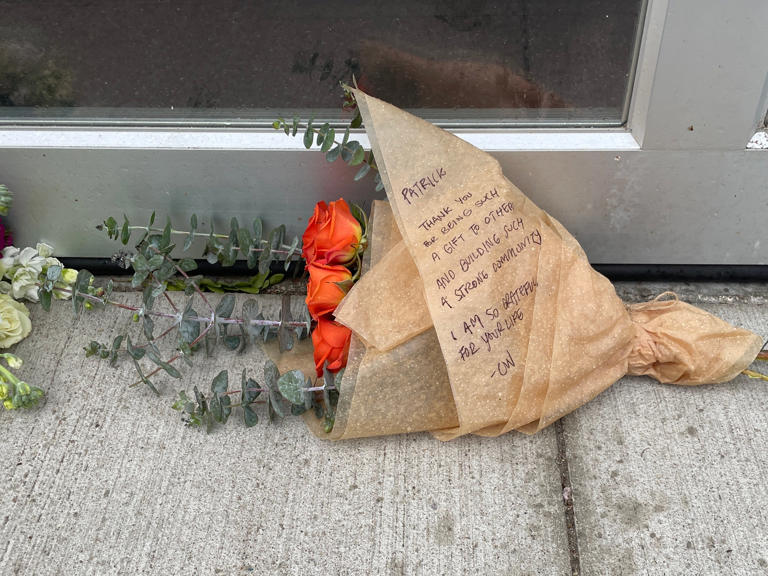 PATRICK
THANK YOU
FOR BEING SUCH
A GIFT TO OTHER
AND BUILDING SUCH
A STRONG COMMUNITY
I AM SO GRATEFUL
FOR YOUR LIFE
-OW